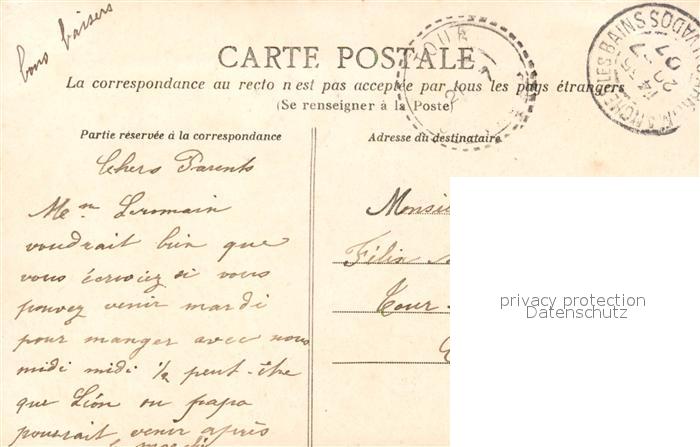 bons baisers
CARTE POSTALE
La correspondance au recto n'est pas acceptée par tous les pays étrangers
(Se renseigner à la Poste)
Partie réservée à la correspondance
Chers Parents
voudrait bien que
vous écriviez si vous
pouvez venir mardi
pour manger avec nous
midi midi 1/2 peut-être
que Léon ou papa
pourrait venir après
Adresse du destinataire
Monsie
Félix
Tour
privacy protection
Datenschutz
LES BAINS